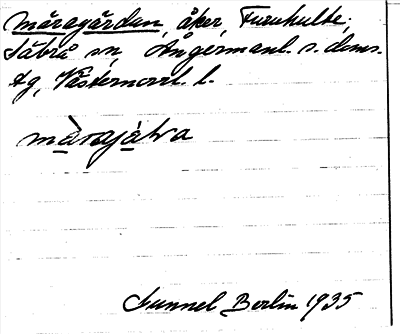 Märagärdan, åker, Furuhulte,
Säbrå sn, Ångermanl. s. doms.
tg, Västernorrl. l.
màrajàḷṛa
Gunnel Berlin 1935